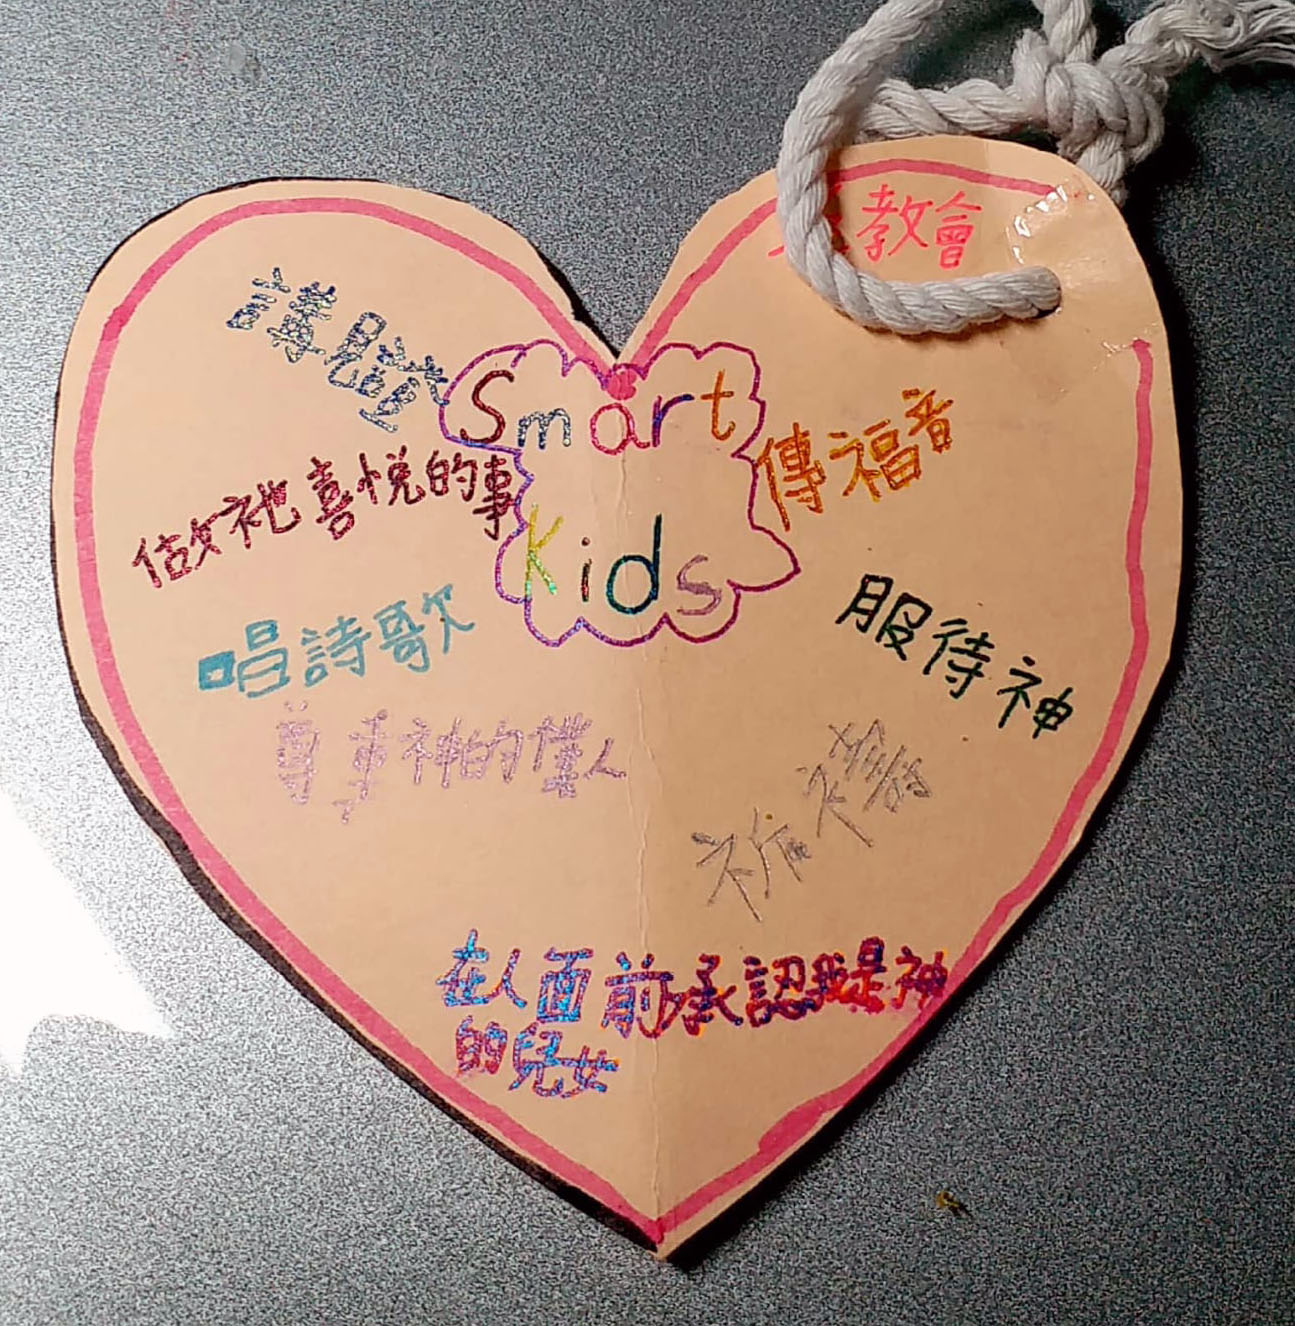 教會
講見證
Smart
Kids
傳福音
做祂喜悅的事
服待神
唱詩歌
尊重神的僕人
祈禱
在人面前承認我是神
的兒女